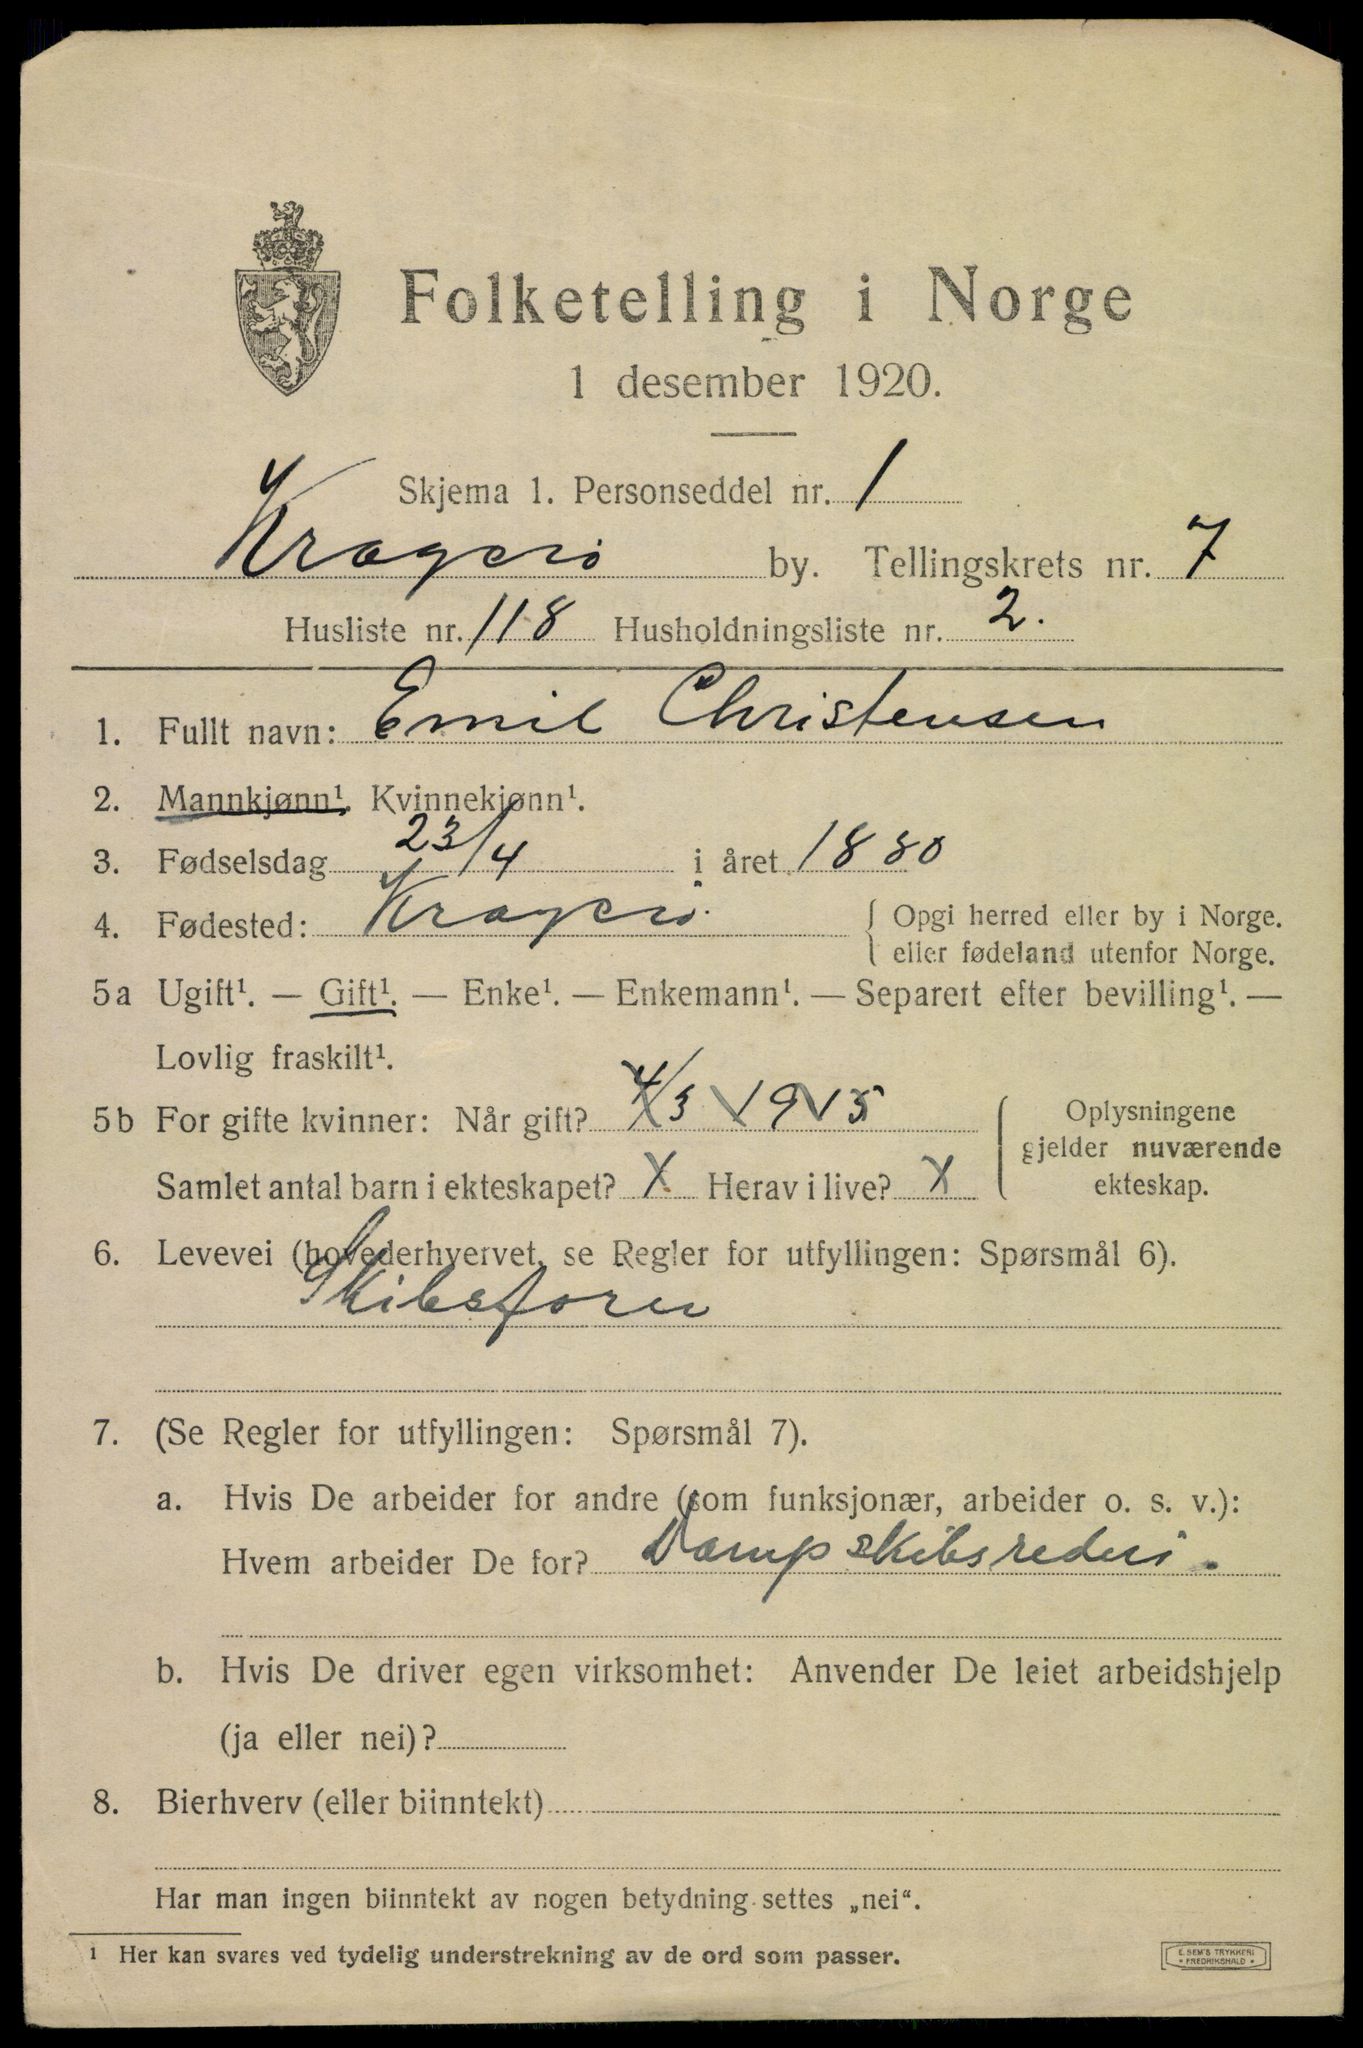 Folketelling i Norge
1 desember 1920.
Skjema 1. Personseddel nr. 1
Kragerø by. Tellingskrets nr. 7
Husliste nr. 118 Husholdningsliste nr. 2.
1. Fullt navn: Emil Christensen
2. Mannkjønn¹. Kvinnekjønn¹.
3. Fødselsdag 23/4 i året 1880
4. Fødested: Kragerø. { Opgi herred eller by i Norge.
eller fødeland utenfor Norge.
5a Ugift¹. — Gift¹. — Enke¹. — Enkemann¹. — Separert efter bevilling¹. —
Lovlig fraskilt¹.
5b For gifte kvinner: Når gift? 4/3 1915
Samlet antal barn i ekteskapet? X Herav i live? X
Oplysningene
gjelder nuværende
ekteskap.
6. Levevei (hovederhvervet, se Regler for utfyllingen: Spørsmål 6).
Skibsfører
7. (Se Regler for utfyllingen: Spørsmål 7).
a. Hvis De arbeider for andre (som funksjonær, arbeider o. s. v.):
Hvem arbeider De for? Dampskibsrederi.
b. Hvis De driver egen virksomhet: Anvender De leiet arbeidshjelp
(ja eller nei)?
8. Bierhverv (eller biinntekt)
Har man ingen biinntekt av nogen betydning settes „nei“.
¹ Her kan svares ved tydelig understrekning av de ord som passer.
E. SEM'S TRYKKERI
* FREDRIKSHALD *